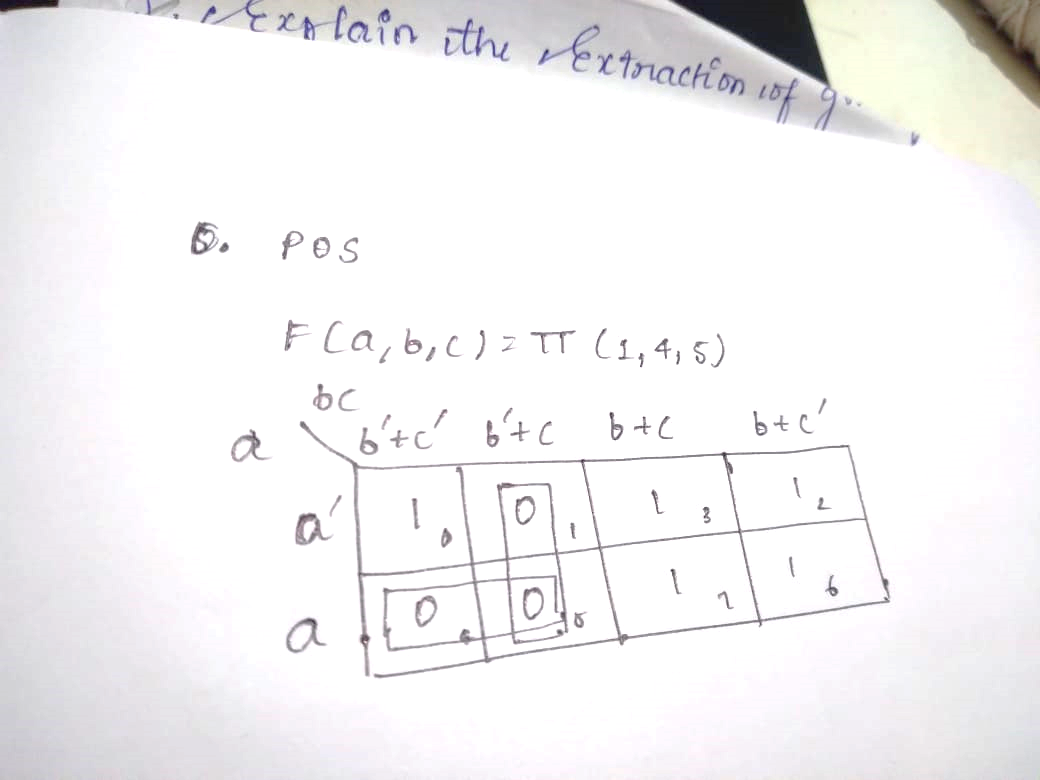 Explain the Extraction of
5. POS
F(a,b,c) = π (1, 4, 5)
bc
a b'+c' b'+c b+c b+c'
a' 1 0 0 1 1 3 1 2
a 0 4 0 5 1 7 1 6